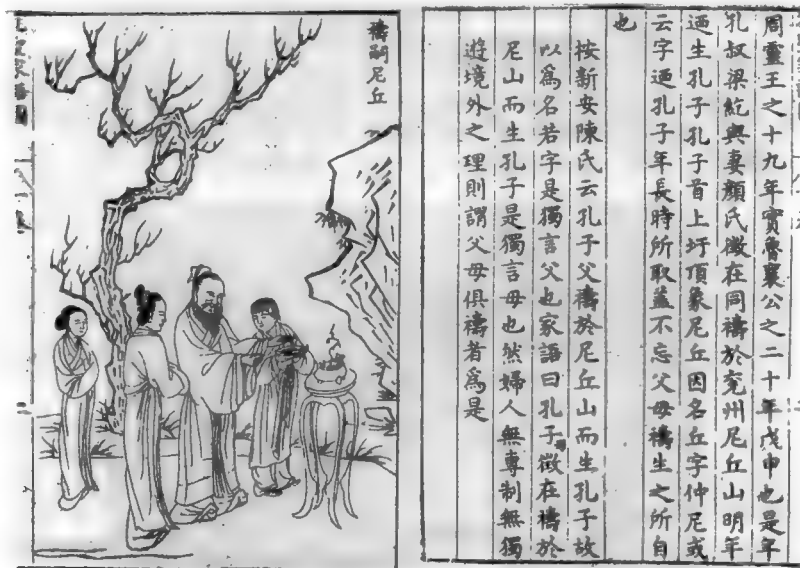 周靈王之十九年實魯襄公之二十年戊申也是年
孔叔梁紇與妻顏氏徵在同禱於兖州尼丘山明年
迺生孔子孔子首上圩頂象尼丘因名丘字仲尼或
云字迺孔子年長時所取蓋不忘父母禱生之所自
也
按新安陳氏云孔子父禱於尼丘山而生孔子故
以爲名若字是獨言父也家語曰孔子徵在禱於
尼山而生孔子是獨言母也然婦人無專制無獨
遊境外之理則謂父母俱禱者爲是
禱嗣尼丘